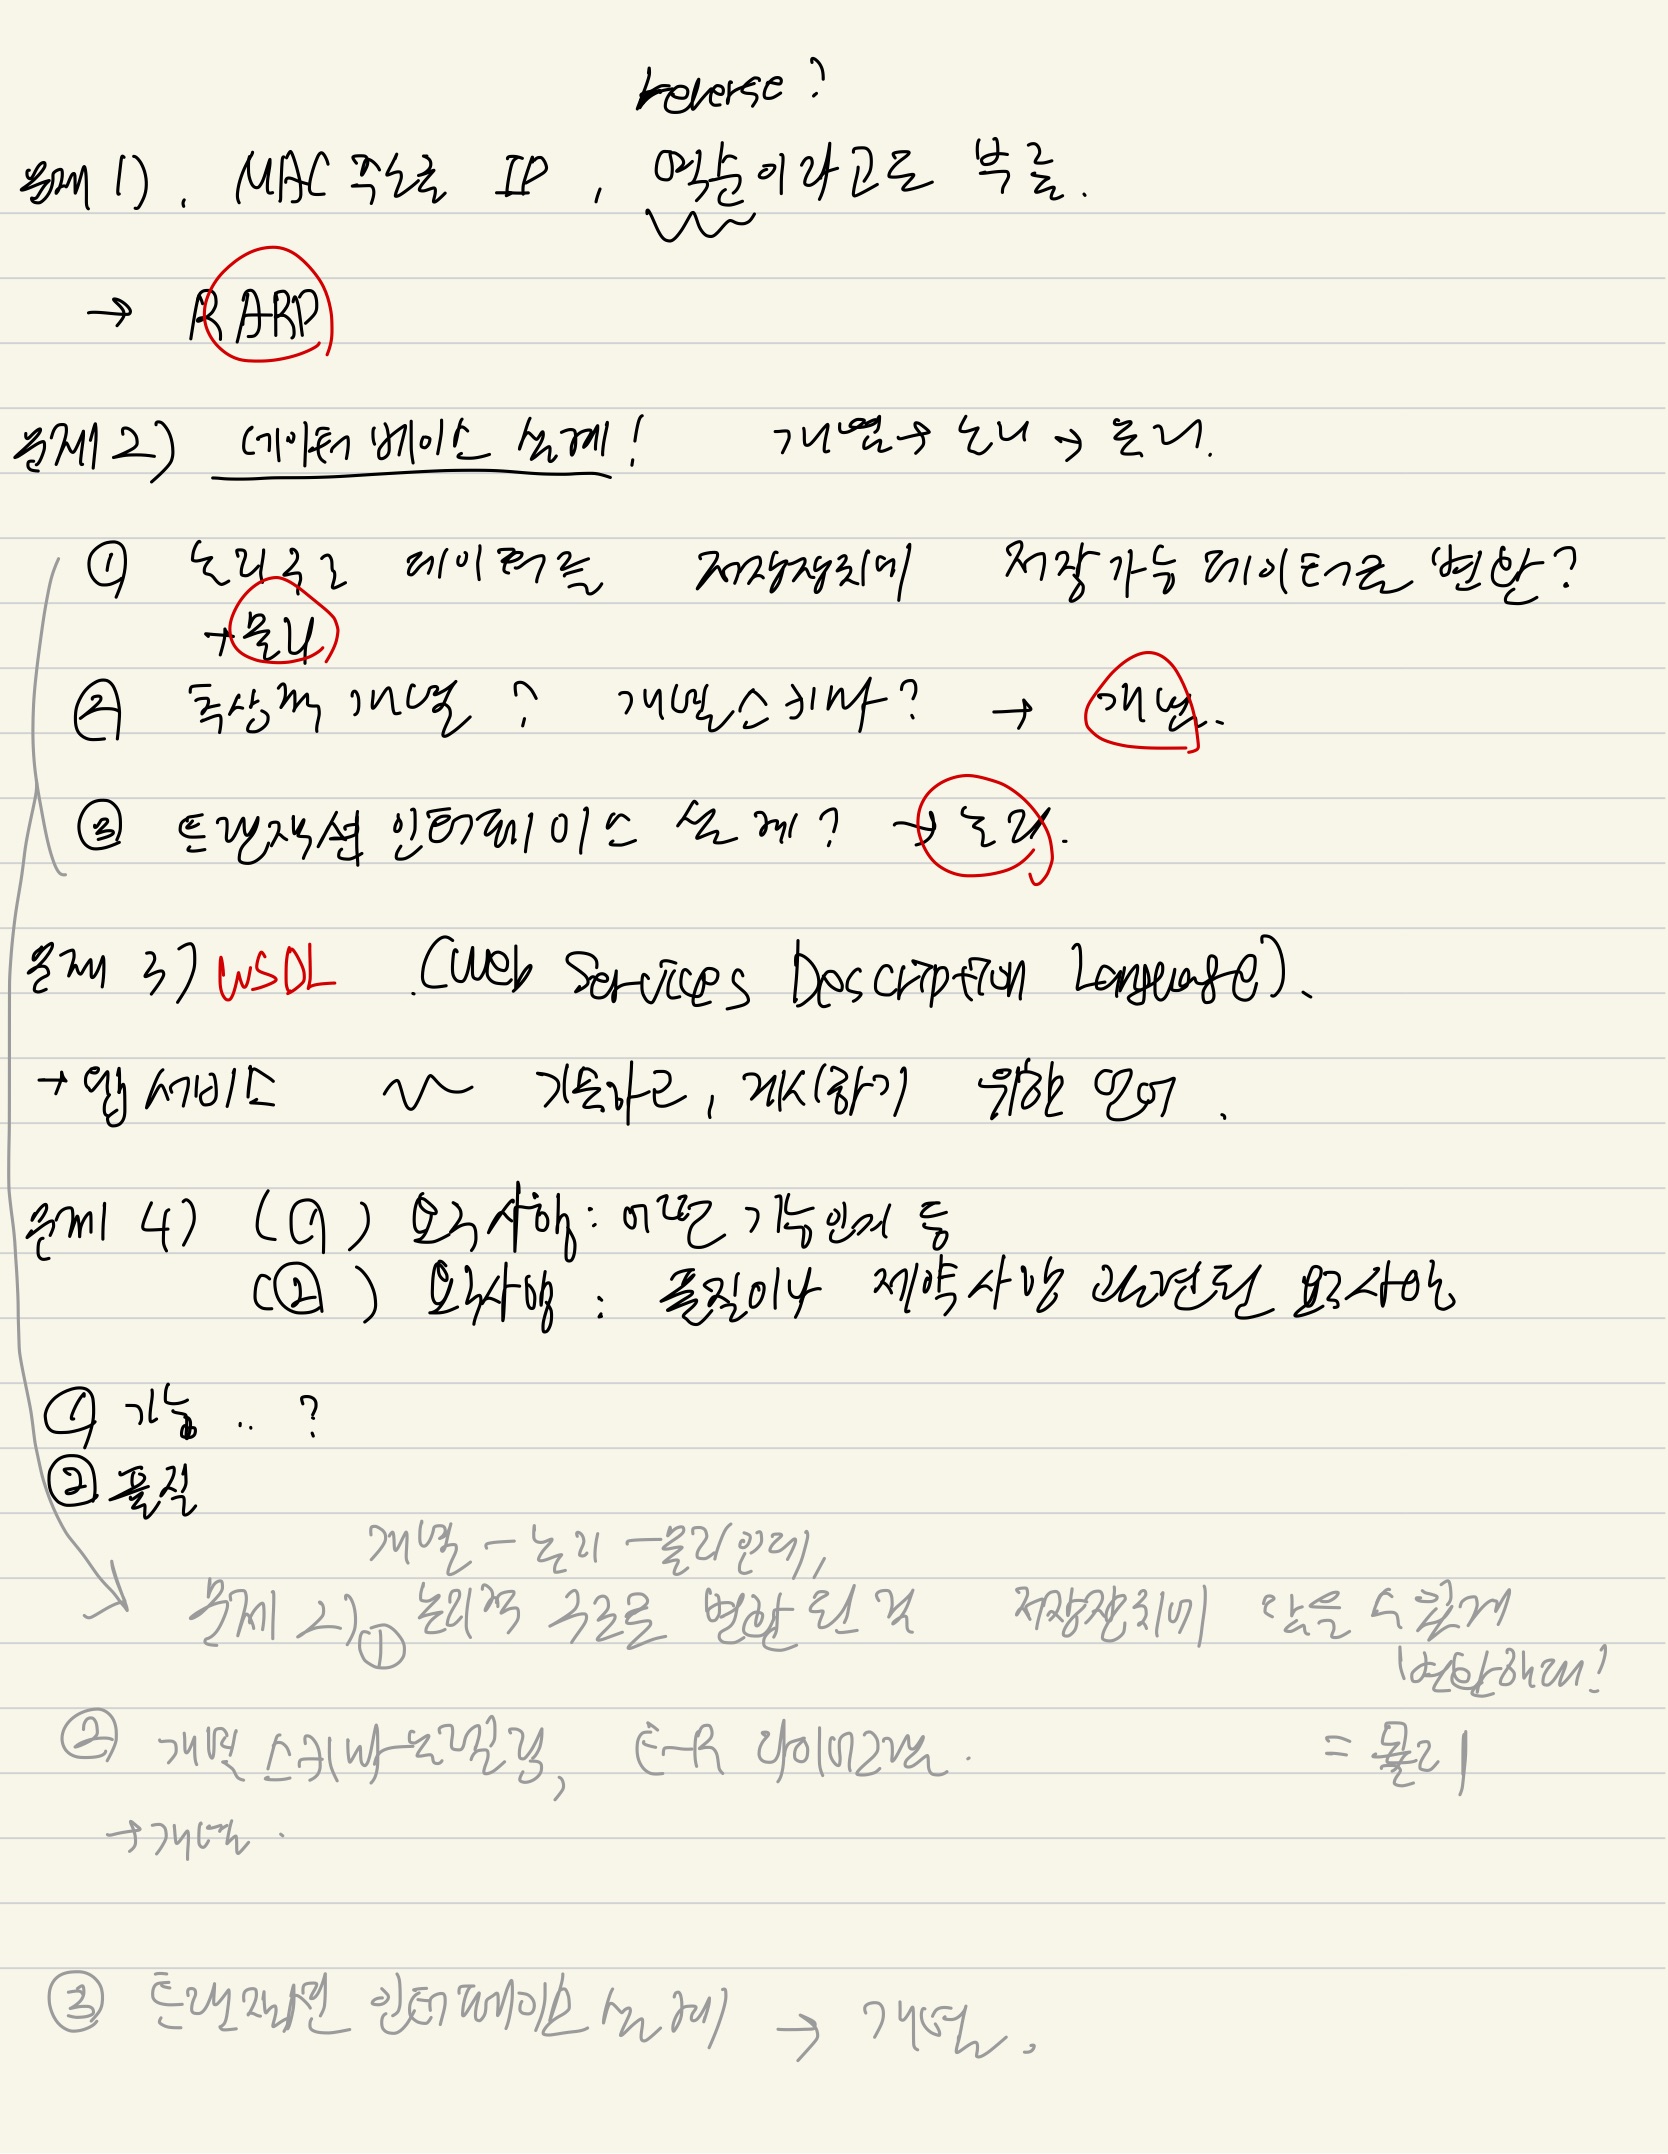 reverse?
문제 1). MAC 주소를 IP, 역순이라고도 부름.
→ RARP
문제 2) 데이터 베이스 설계! 개념 → 논리 → 물리.
① 논리구조 데이터를 저장장치에 저장가능 데이터로 변환?
→ 물리
② 추상적 개념? 개념스키마? → 개념.
③ 트랜잭션 인터페이스 설계? → 논리.
문제 3) WSDL. (Web Services Description Language).
→ 웹 서비스 기술하고, 게시하기 위한 언어.
문제 4) (①) 요구사항: 어떤 기능인지 등
(②) 요구사항: 품질이나 제약사항 관련된 요구사항
① 기능..?
② 품질
개념 - 논리 - 물리인데,
문제 2) ① 논리적 구조로 변환된 걸 저장장치에 담을 수 있게
변환해대!
② 개념 스키마 모델링, E-R 다이어그램. = 물리
→ 개념.
③ 트랜잭션 인터페이스 설계 → 개념.